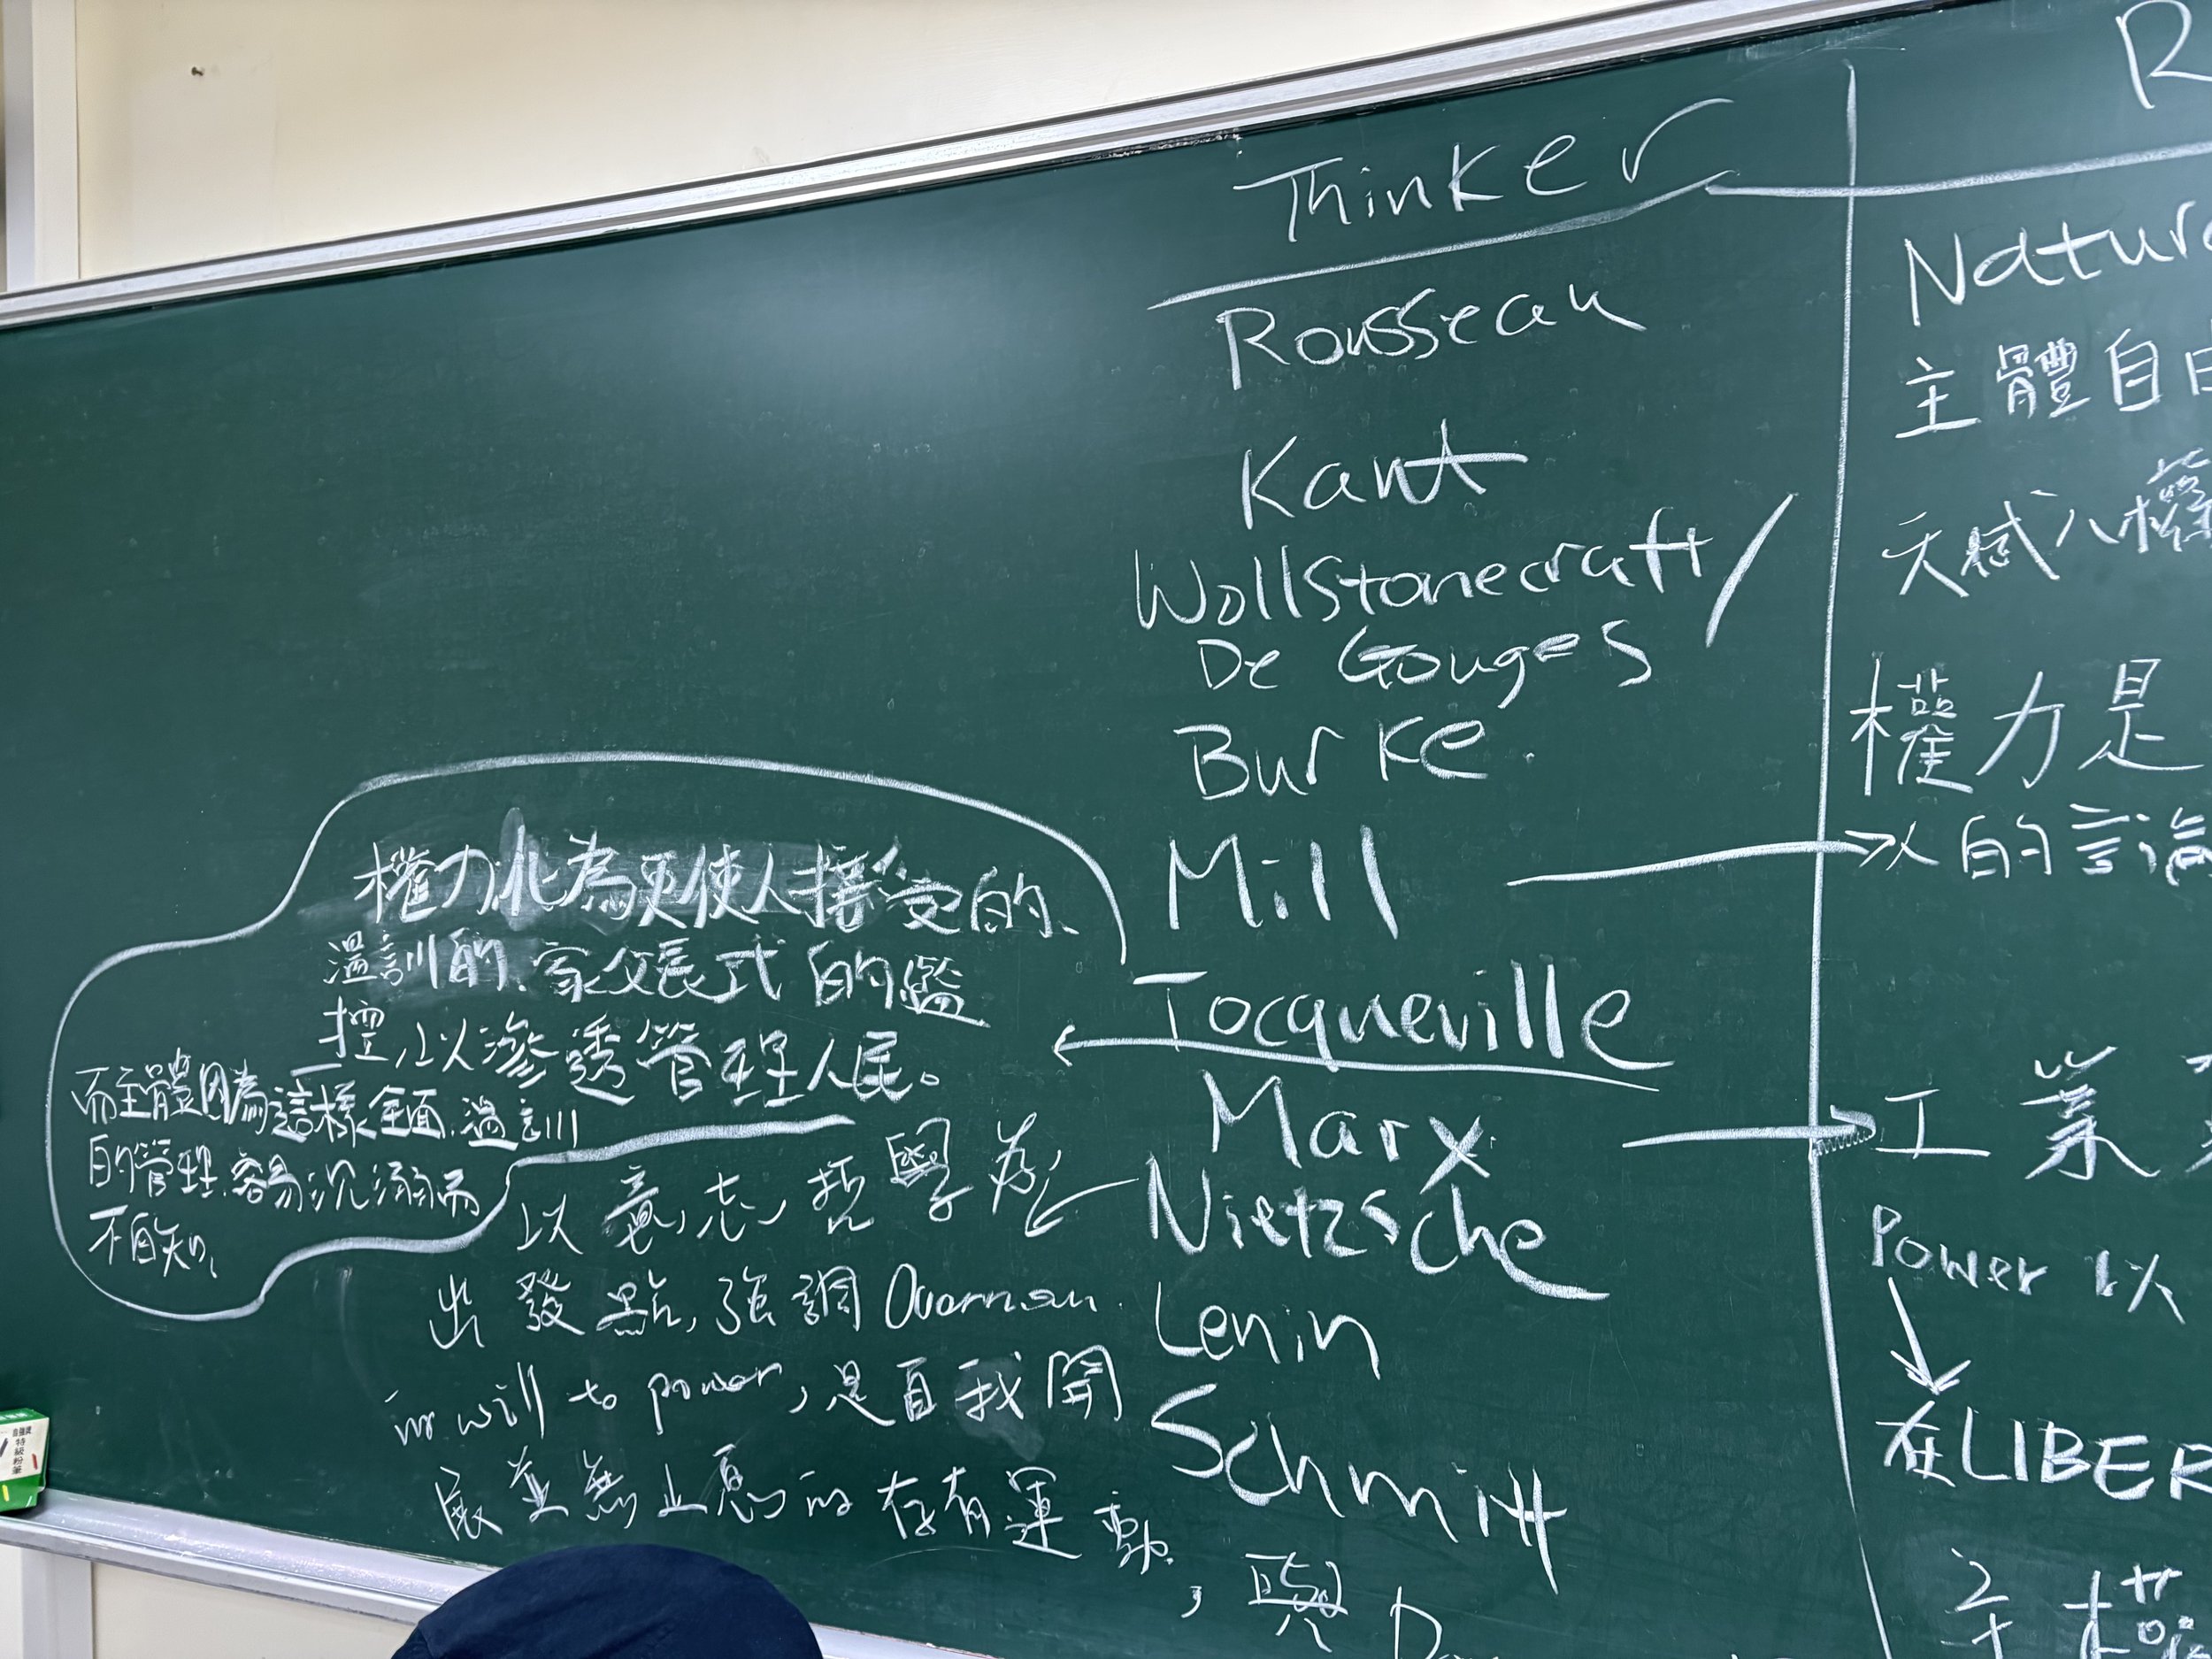 Thinker
R
Rousseau
Natur
Kant
主體自由
Wollstonecraft/
天賦人權
De Gouges
Burke.
權力是
Mill
以的言論
Tocqueville
權力化為更使人接受的、
溫訓的、家父長式的監
控,以滲透管理人民。
而主體因為這樣全面、溫訓
的管理、容易沉溺而
不自知、
Marx
工業
Nietzsche
以意志哲學為
出發點,強調Overman
will to power,是自我開
展並無止息的存有運動,與
Lenin
Power 以
Schmitt
在LIBER
主權
特級粉筆